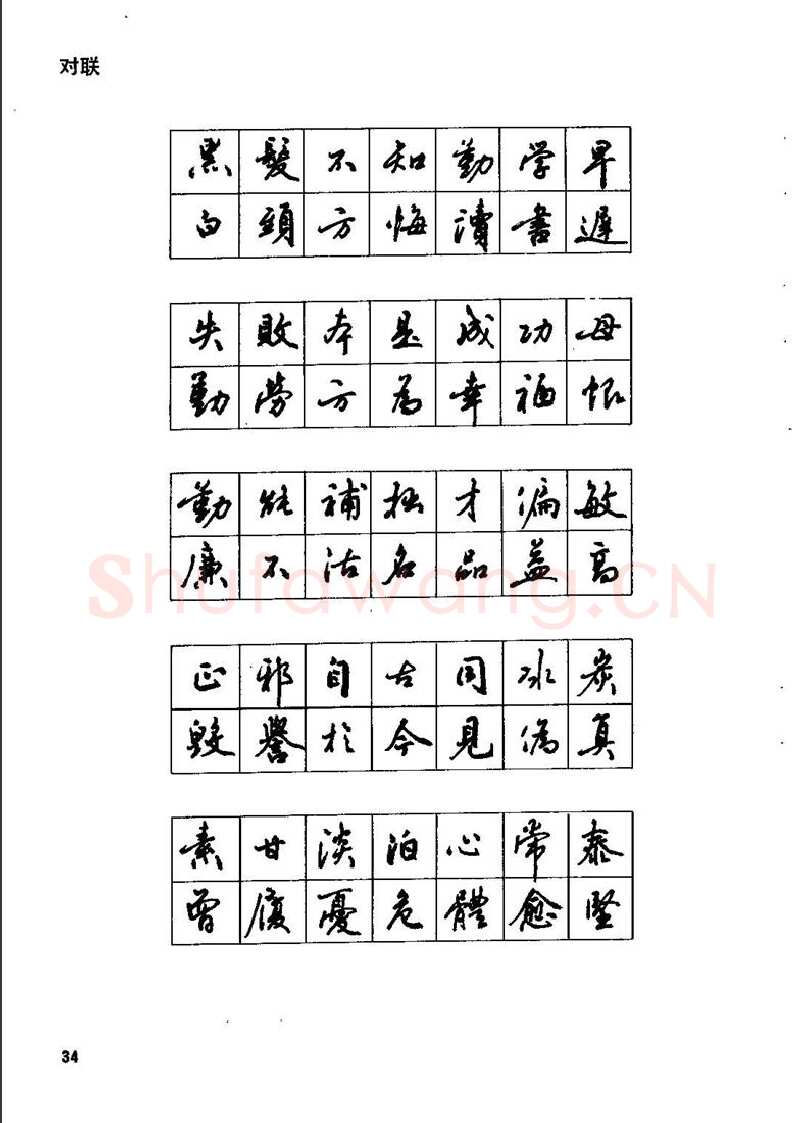 对联
黑髮不知勤学早
白頭方悔讀書遲
失敗本是成功母
勤勞方為幸福根
勤能補拙才偏敏
廉不沽名品益高
Shufawang.CN
正邪自古同冰炭
毀譽於今見偽真
素甘淡泊心常泰
曾履憂危體愈堅
34